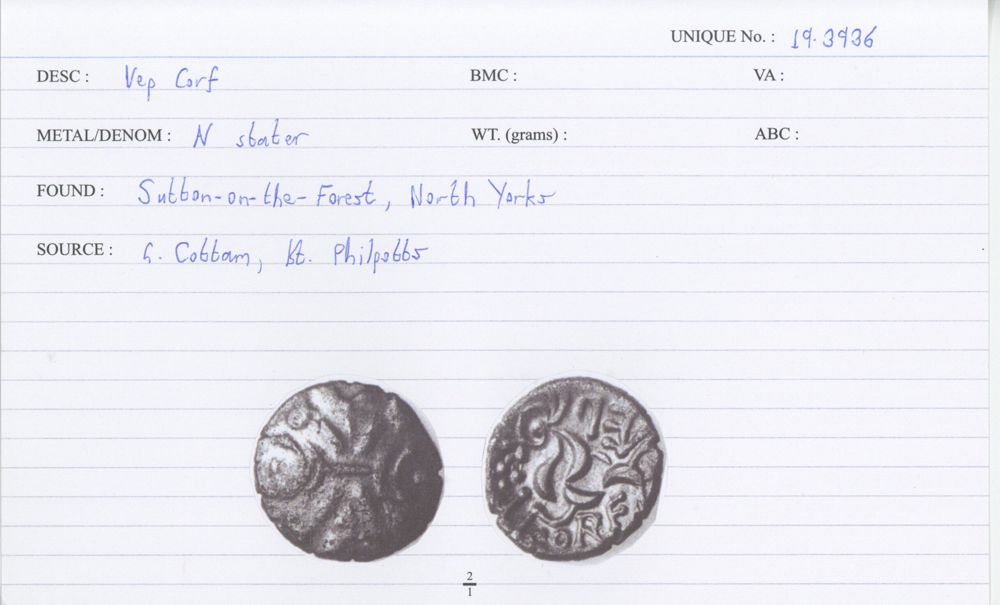 UNIQUE No. : 19.3936
DESC : Vep Corf BMC : VA :
METAL/DENOM : N stater WT. (grams) : ABC :
FOUND : Sutton-on-the-Forest, North Yorks
SOURCE : G. Cottam, Philpotts
VEP
CORF
2
1